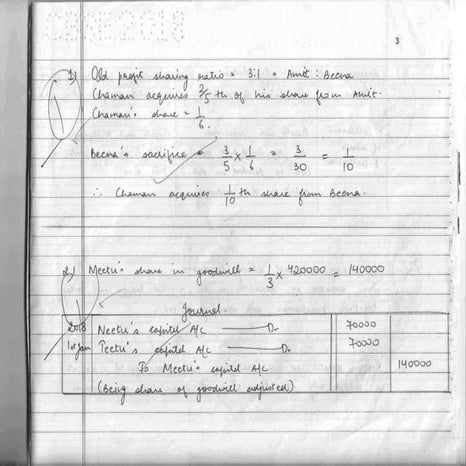 3
1) Old profit sharing ratio = 3:1 = Amit : Beena
Chaman acquires 3/5 th of his share from Amit.
Chaman's share = 1/6.
Beena's sacrifice = 3/5 x 1/6 = 3/30 = 1/10
∴ Chaman acquires 1/10 th share from Beena.
Meetu's share in goodwill = 1/3 x 420000 = 140000
Journal.
2018 Neetu's capital A/C Dr. 70000
1st Jan Teetu's capital A/C Dr. 70000
To Meetu's capital A/C 140000
(Being share of goodwill adjusted)